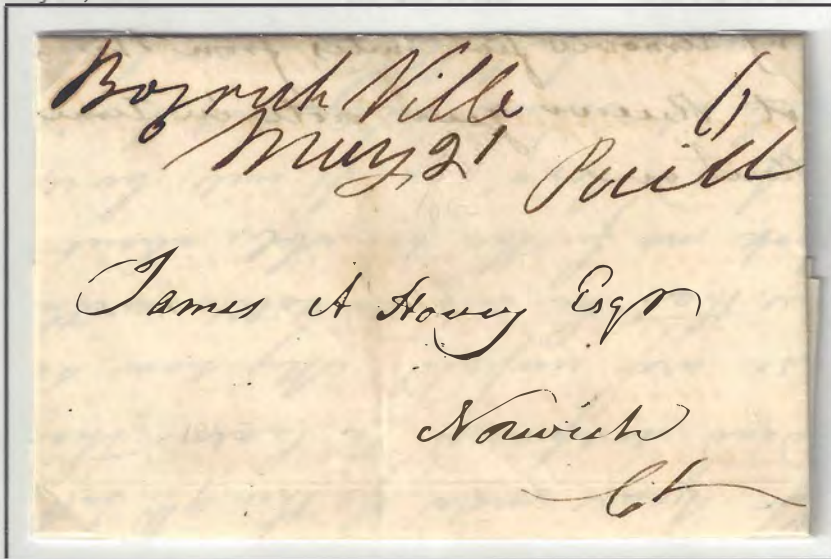 Bozrah Ville 6
May 21 Paid
James A Hovey Esqr
Norwich
Ct